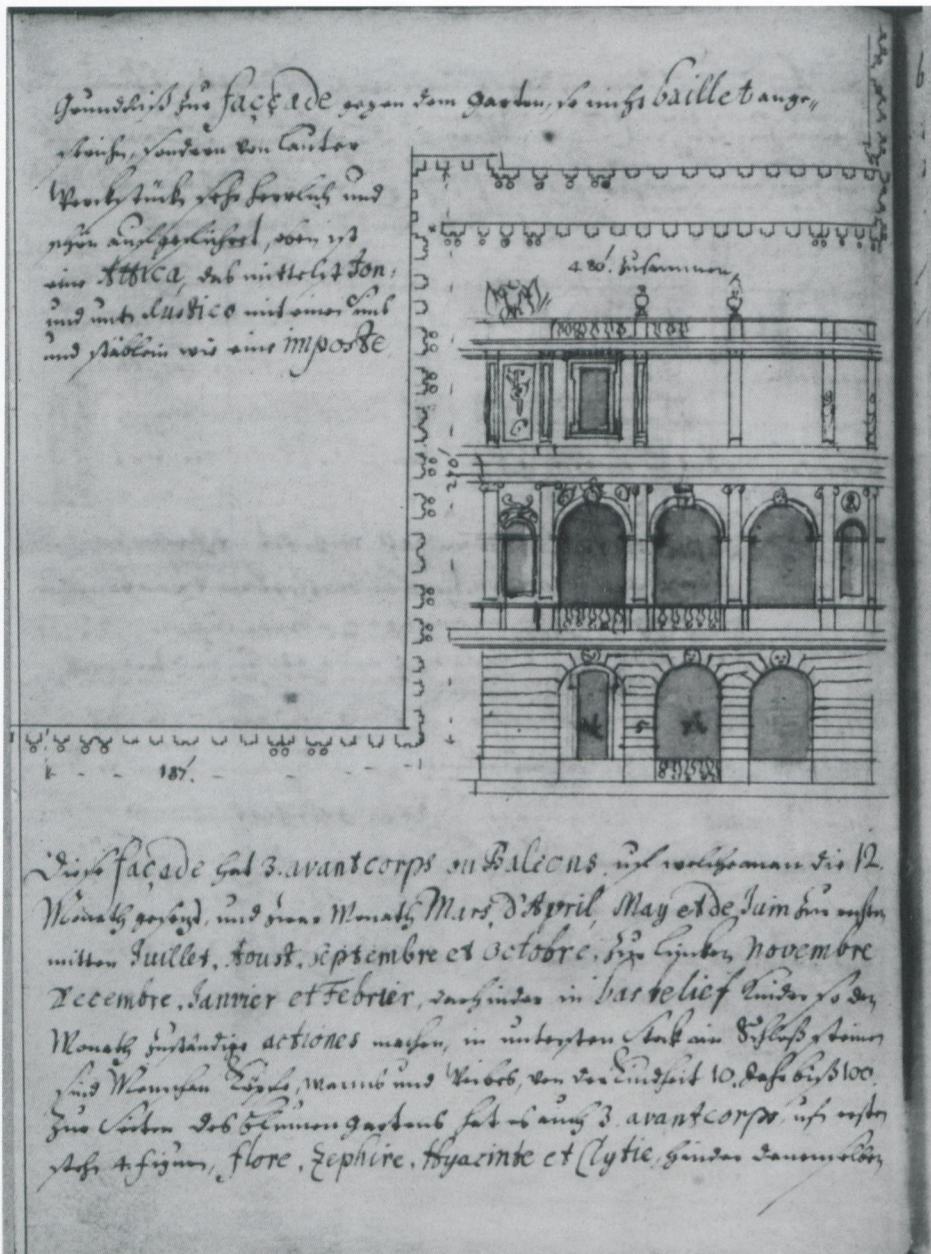 Grundriß zur façade gegen dem garten, so nicht baillet ange„
strichen, sondern von lauter
Werckstück sehr herrlich und
schön aufgeführet, oben ist
eine Attica, das mittelst Ion:
und unten Rustico mit einer
und stäblein wie eine imposte
480'. zusammen
270'
187'.
Diese façade hat 3. avantcorps ou Balcons, uf welche man die 12.
Monath gesezt, und zwar Monath Mars, d'Avril, May et de Juin zur rechten
mitten Juillet, Aoust, Septembre et Octobre, zur lincken Novembre
Decembre, Janvier et Febrier, darhinder in bas relief Kinder so den
Monath zuständige actiones machen, in untersten Stock am Schloß steinen
sind Menschen Köpfe, manns und Weibes, von der Kindheit 10. Jahr biß 100.
Zur Seiten des blumen gartens hat es auch 3 avantcorps, uf ersten
stehn 4 figuren, flore, Zephire, Hyacinte et Clytie, hinder denenselben